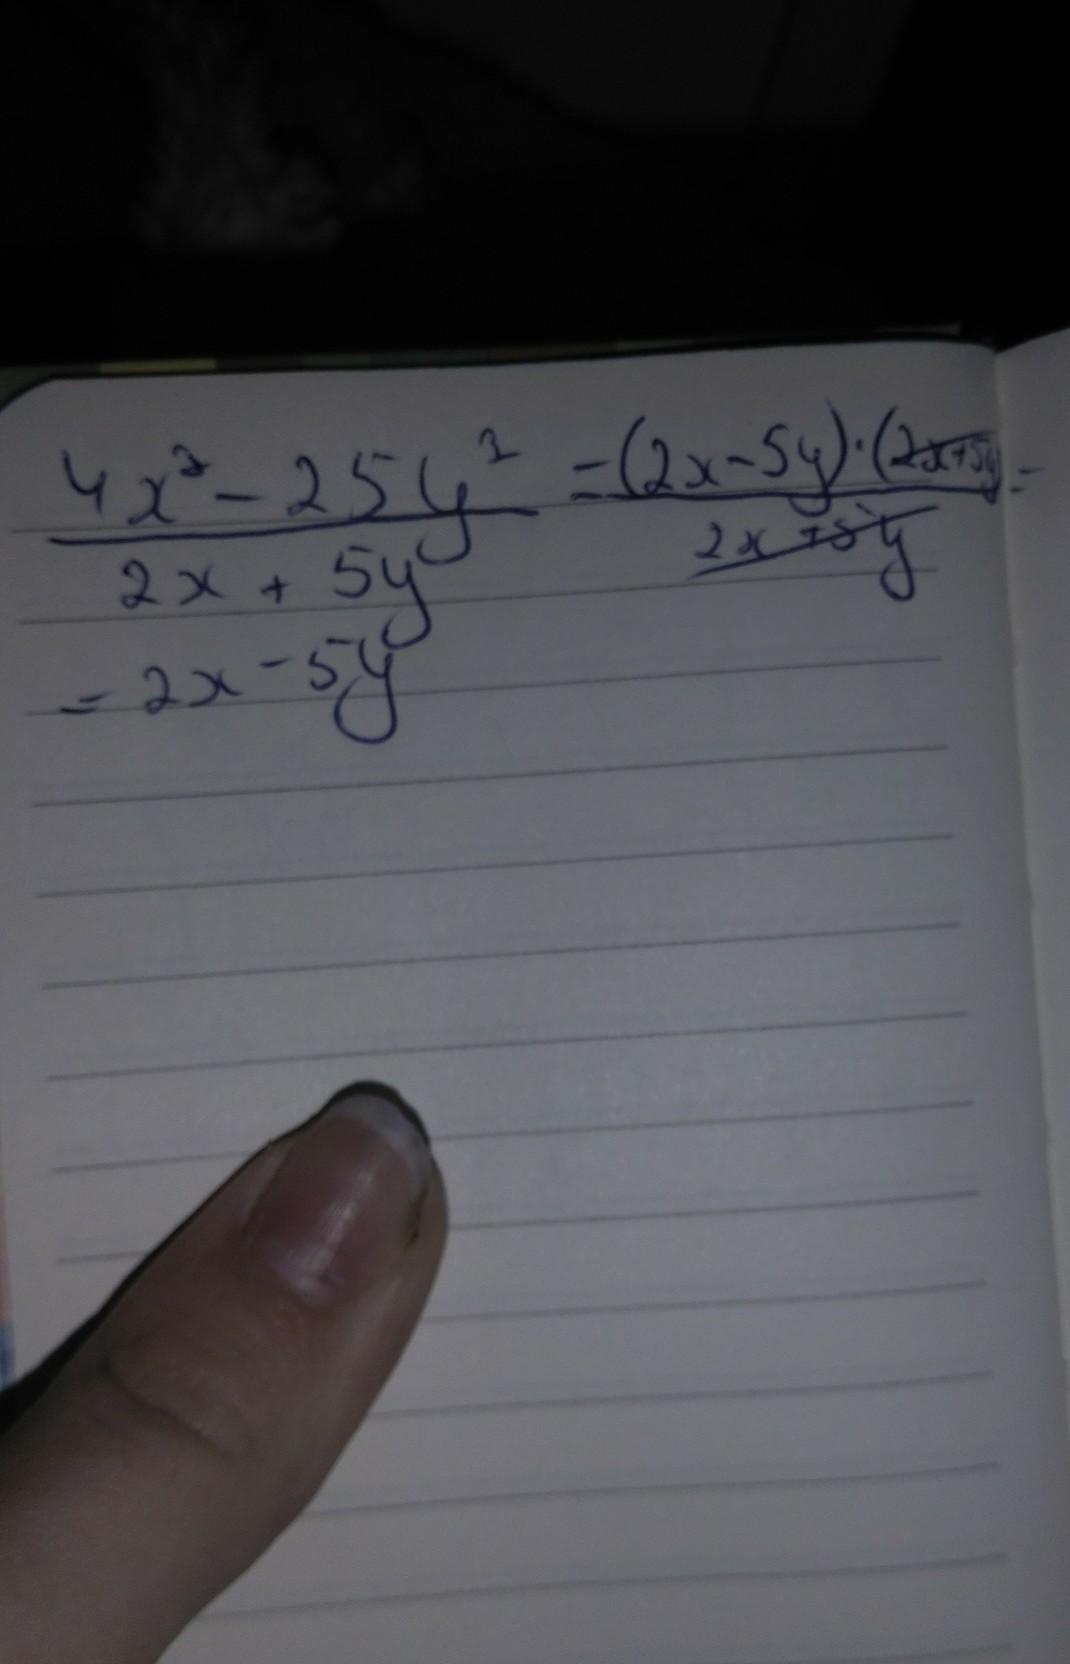 4x² - 25y² / 2x + 5y = (2x-5y)·(2x+5y) / 2x+5y =
= 2x - 5y